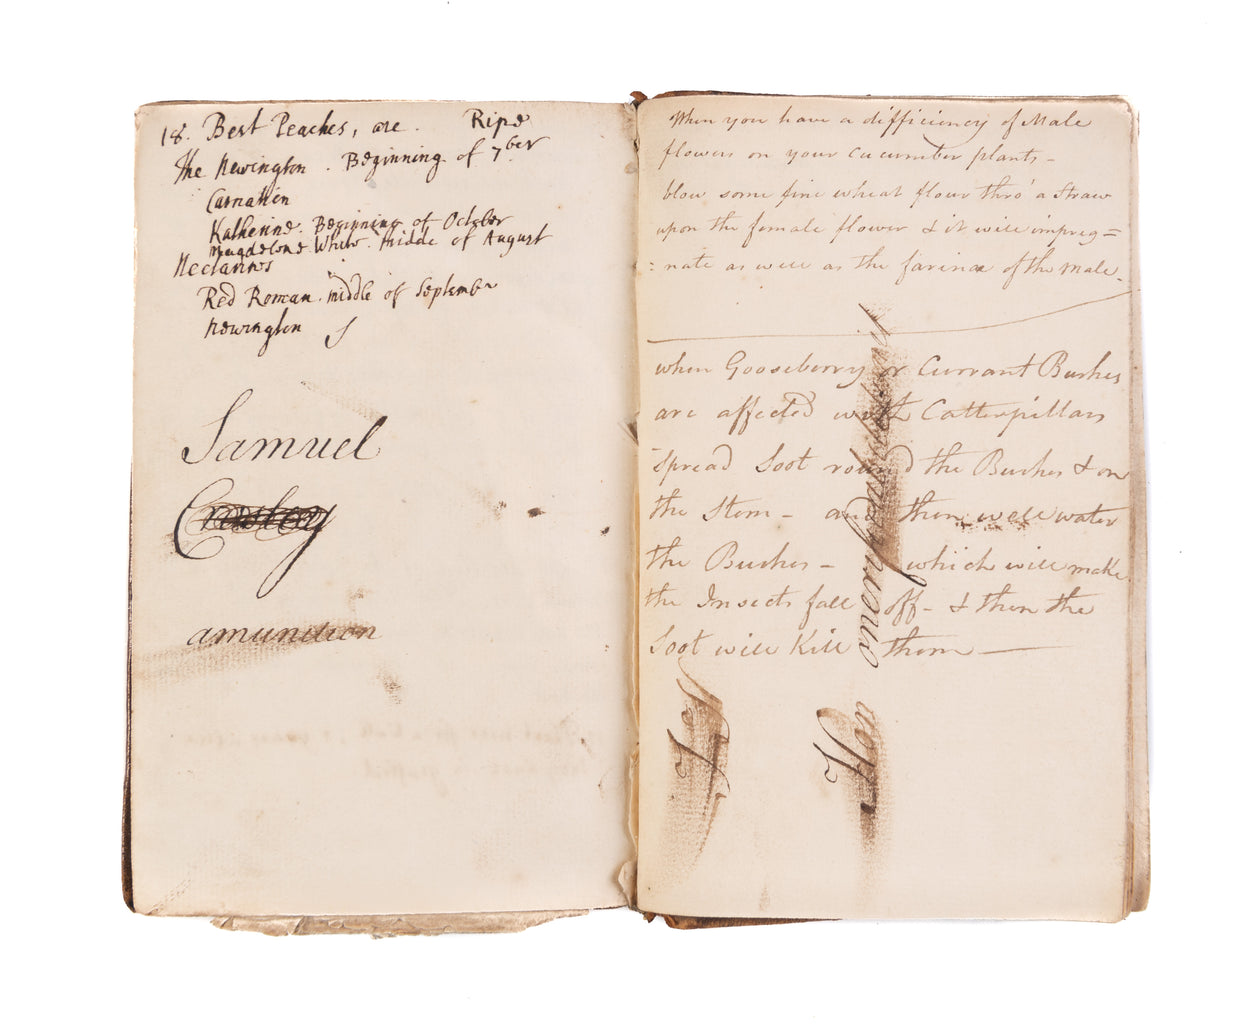 18. Best Peaches, are. Ripe
The Newington. Beginning of 7ber
Carnation
Katherine. Beginning of October
Magdelene White. Middle of August
Nectarins
Red Roman. middle of September
Newington
Samuel
Crosley
amunition
When you have a difficiency of Male
flowers on your cucumber plants -
blow some fine wheat flour thro' a Straw
upon the female flower & it will impreg=
:nate as well as the farinae of the male.
when Gooseberry or Currant Bushes
are affected with Catterpillars
spread Soot round the Bushes & on
the Stem - and then well water
the Bushes - which will make
the Insects fall off - & then the
Soot will Kill them -
Hon